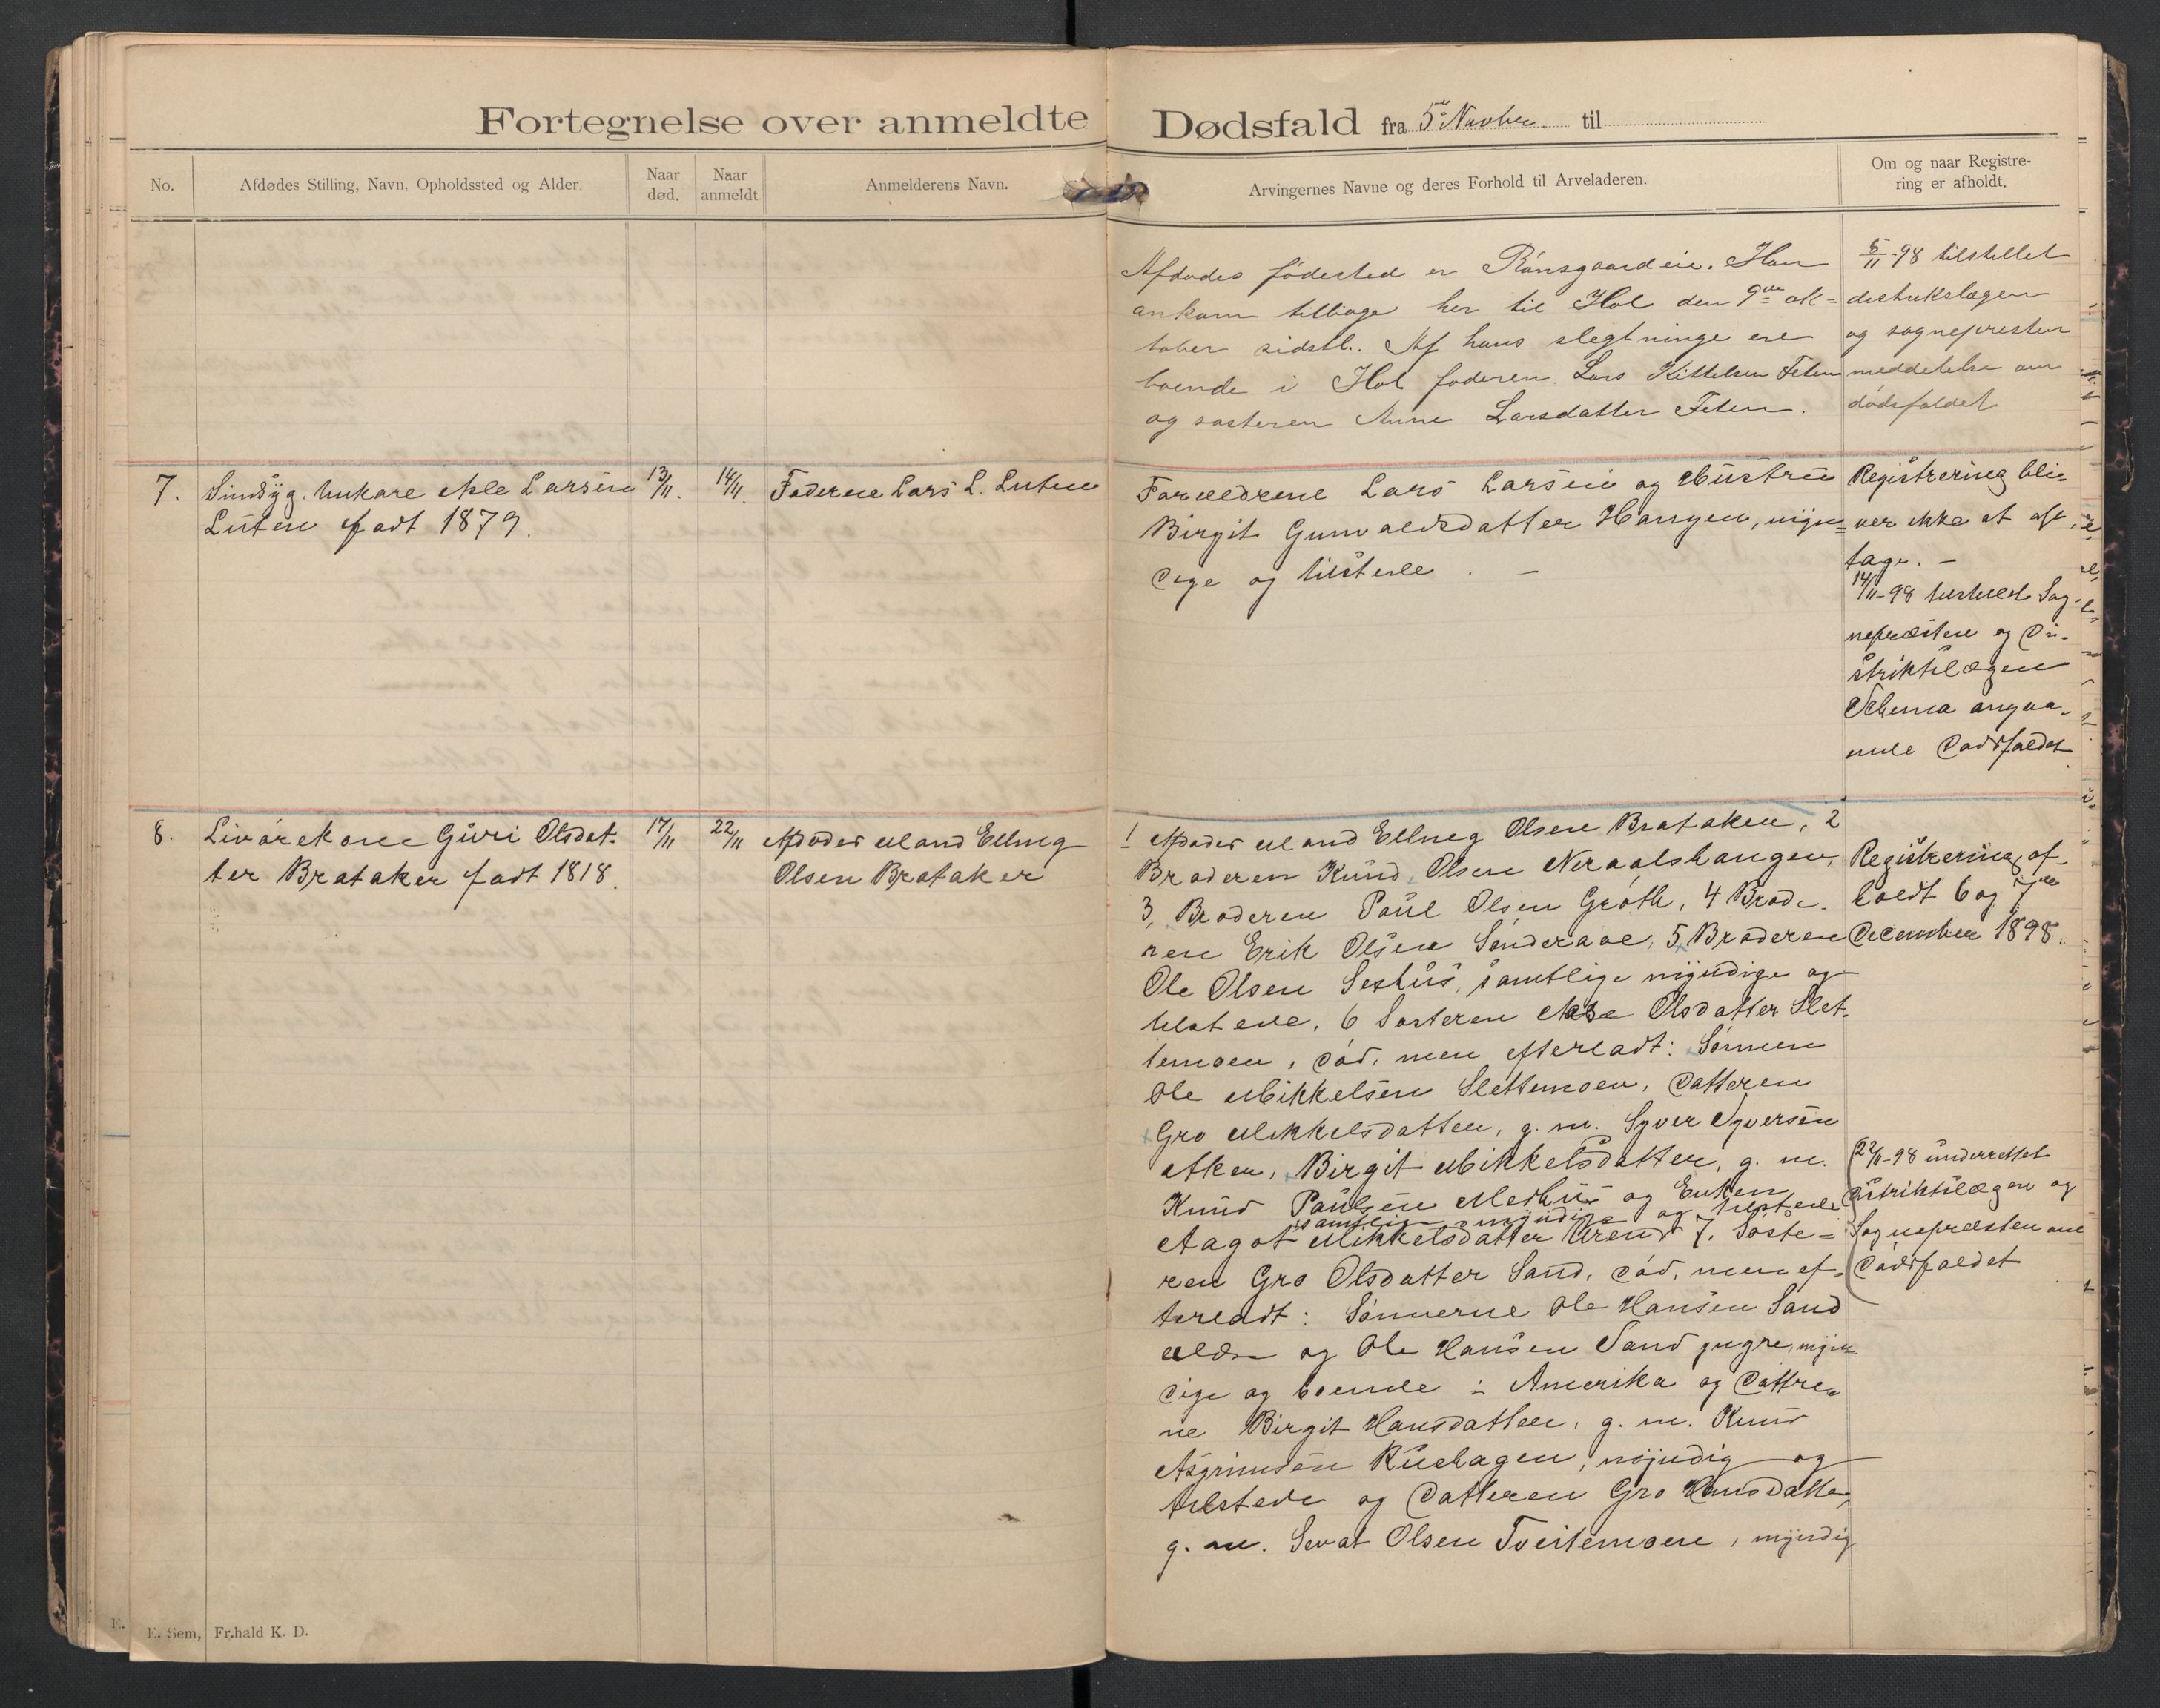 Fortegnelse over anmeldte Dødsfald fra 5te Novber. til
No.
Afdødes Stilling, Navn, Opholdssted og Alder.
Naar død.
Naar anmeldt
Anmelderens Navn.
Arvingernes Navne og deres Forhold til Arveladeren.
Om og naar Registre-
ring er afholdt.
Afdødes fødested er Rónsgaardeie. Han
ankom tilbage her til Hol den 9de ok=
tober sidstl. Af hans slegtninge ere
boende i Hol faderen Lars Kittelsen Feten
og søsteren Anne Larsdatter Feten.
5/11-98 tilstillet
distrikslægen
og sognepresten
meddelelse om
dødsfaldet
7. Sindsyg. Unkare Asle Larsen 13/11. 14/11. Faderen Lars L. Luten
Luten født 1879.
Forældrene Lars Larsen og Hustru
Birgit Gunvaldsdatter Haugen, mýn=
dige og tilstede. —
Registrering bli-
ver ikke at af-
tage. —
14/11-98 tilstillet Sog-
nepræsten og Di-
striktslægen
Schema angaa-
ende Dødsfaldet
8. Livørekone Guri Olsdat- 17/11 22/11 Afdødes Mand Elling
ter Brataker født 1818. Olsen Brataker
1 Afdødes Mand Elling Olsen Brataker, 2
Broderen Knud Olsen Neraalshaugen,
3, Broderen Paul Olsen Grøth, 4 Brode-
ren Erik Olsen Sønderaal, 5, Broderen
Ole Olsen Seshus, samtlige myndige og
tilstede, 6 Søsteren Aase Olsdatter Slet-
temoen, død, men efterladt: Sønnen
Ole Mikkelsen Slettemoen, Datteren
Gro Mikkelsdatter, g. m. Syver Syversen
Aker, Birgit Mikkelsdatter, g. m.
Knud Paulsen Medhus og Enken
samtlige myndige og tilstede
Aagot Mikkelsdatter Urend 7. Søste-
ren Gro Olsdatter Sand, død, men ef-
terladt: Sønnerne Ole Hansen Sand
ældre og Ole Hansen Sand yngre, myn-
dige og boende i Amerika og Døttre-
ne Birgit Hansdatter, g. m. Knud
Asgrimsen Ruehagen, myndig og
tilstede og Datteren Gro Hansdatter,
g. m. Sevat Olsen Tveitemoen, myndig
Registrering af-
holdt 6 og 7de
December 1898.
22/11-98 underrettet
Distriktslægen og
Sognepræsten om
Dødsfaldet
E. Sem, Fr.hald K. D.